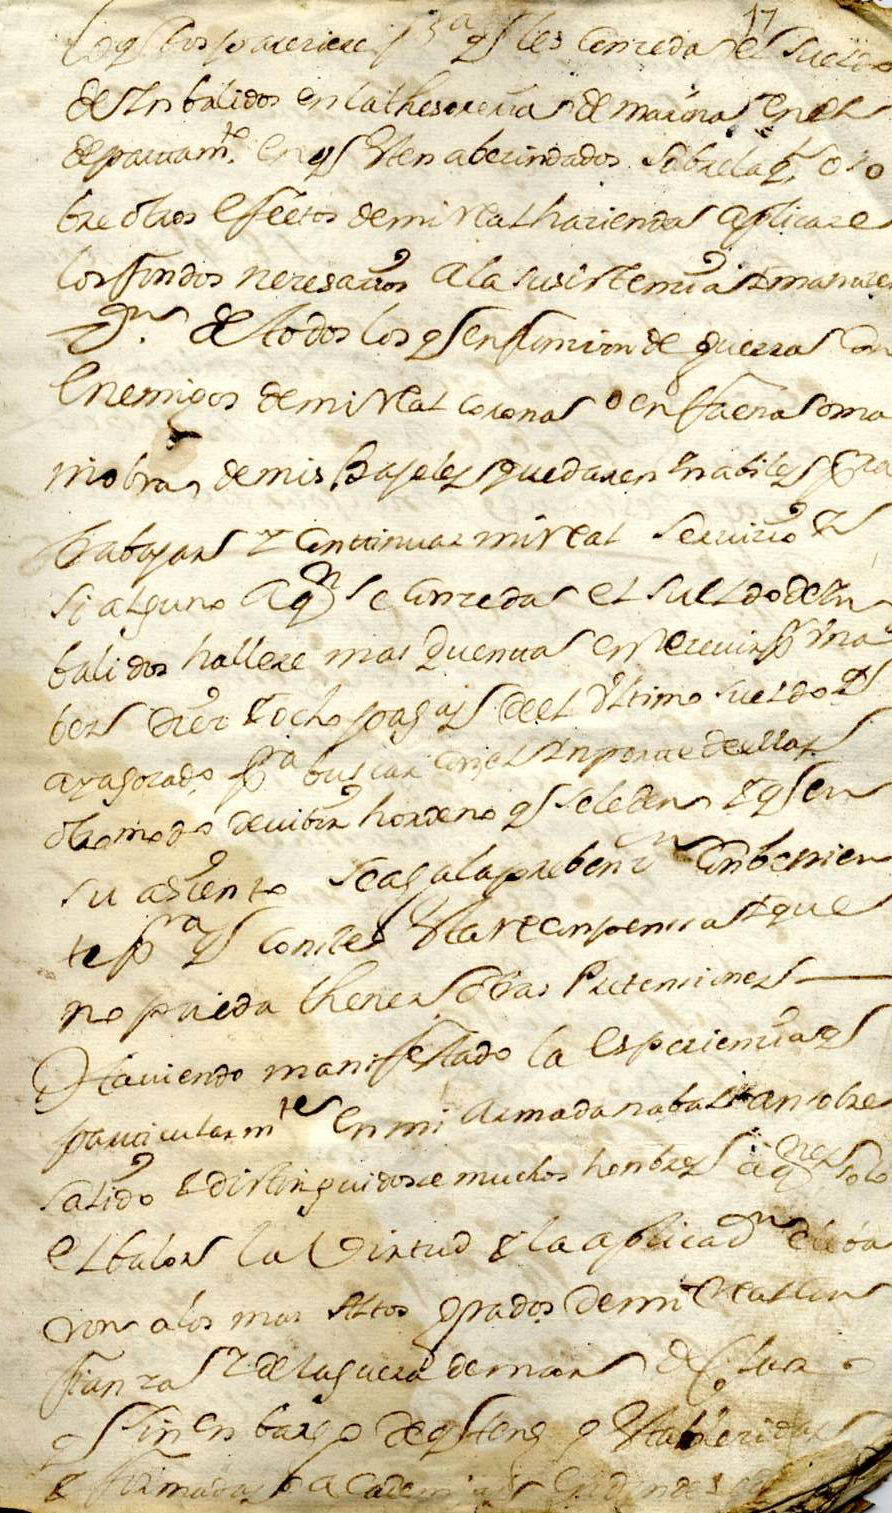 17
los q̃ los paresiere p.ra q̃ les conzeda el sueldo
de Ynbalidos en la thesoreria de marina en el
departam.to en q̃ esten abezindados sobre la q.l o so
bre otros efectos de mi real hazienda aplicare
los fondos nezesarios a la susistenzia y manuten
z.on de todos los q̃ en funzion de guerra con
Enemigos de mi real corona o en faena o ma
niobra de mis Bajeles quedaren Ynabiles p.a
trabajar y continuar mi real servizio y
si alguno a q.n se conzeda el sueldo de Yn
balidos hallere mas quenta en rezevir p.r una
bez diez y ocho pagas de el ultimo sueldo q̃
a gozado p.a buscar con el Ynporte de ellas
otro modo de vibir hordeno q̃ se le den y q̃ en
su asiento se aga la prebenz.on conbenien
te p.ra q̃ conste esta reconpensa y que
no pueda thener otras Pretensiones
Haviendo manifestado la esperienzia q̃
particularm.te en mi Armada nabal an sobre
salido y distinguidose muchos honbres a q.nes solo
el balor la Virtud y la aplicaz.on eleba
ron a los mas altos grados de mi real con
fianza y de la guerra de mar declaro
q̃ sin enbargo de q̃ tengo establezidas
y formadas academias en donde